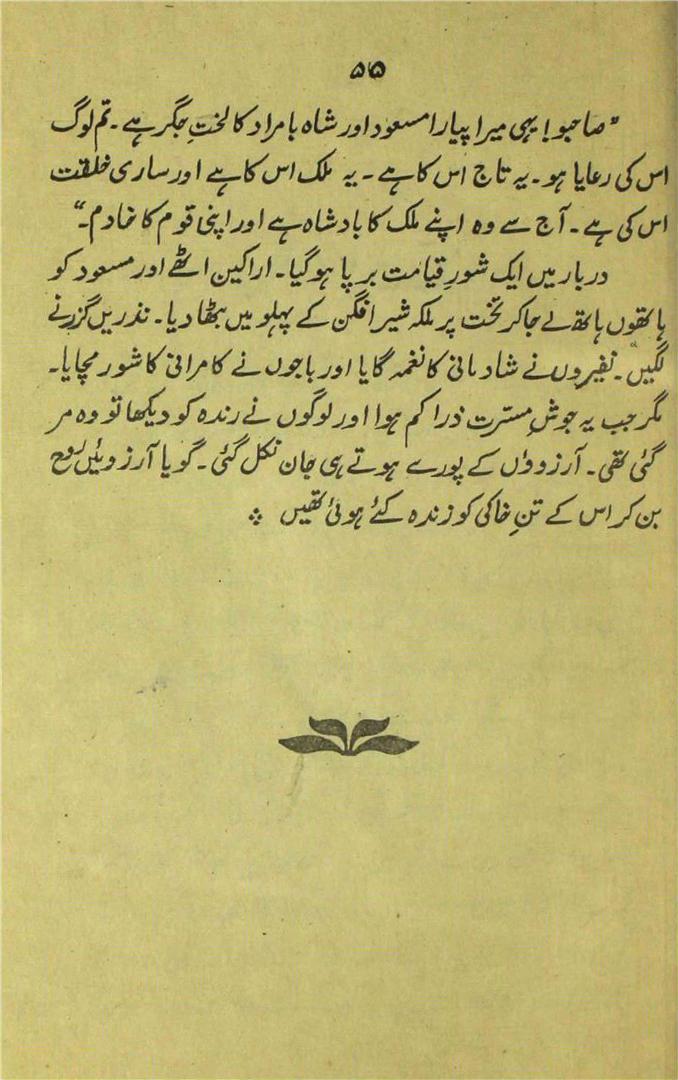 ۵۵
"صاحبو! یہی میرا پیارا مسعود اور شاہ بامراد کا لختِ جگر ہے۔ تم لوگ
اس کی رعایا ہو۔ یہ تاج اس کا ہے۔ یہ ملک اس کا ہے اور ساری خلقت
اس کی ہے۔ آج سے وہ اپنے ملک کا بادشاہ ہے اور اپنی قوم کا خادم۔"
دربار میں ایک شورِ قیامت برپا ہوگیا۔ اراکین اٹھے اور مسعود کو
ہاتھوں ہاتھ لے جا کر تخت پر ملکہ شیر افگن کے پہلو میں بٹھا دیا۔ نذریں گزرنے
لگیں۔ نفیروں نے شادمانی کا نغمہ گایا اور باجوں نے کامرانی کا شور مچایا۔
مگر جب یہ جوشِ مسّرت ذرا کم ہوا اور لوگوں نے رندہ کو دیکھا تو وہ مر
گئی تھی۔ آرزووٴں کے پورے ہوتے ہی جان نکل گئی۔ گویا آرزوئیں روح
بن کر اس کے تنِ خاکی کو زندہ کئے ہوئی تھیں ؞